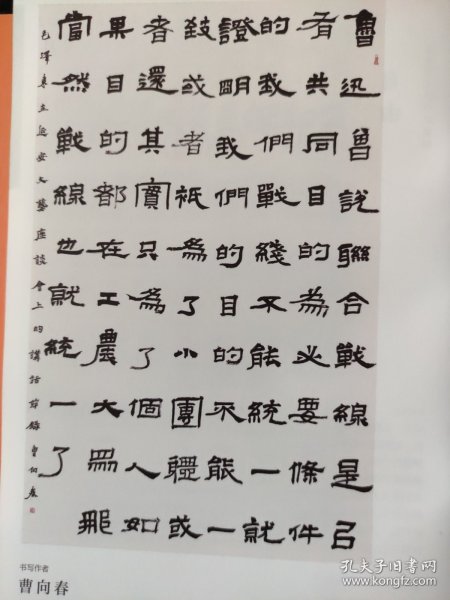 魯迅曾說聯合戰線是以
有共同目的為必要條件
的我們戰綫不能統一就
證明我們的目的不能一
致或者祇為了小團體或
者還其實只為了個人如
果目的都在工農大眾那
當然戰線也就統一了
毛澤東在延安文藝座談會上的講話節錄 曹向春
书写作者
曹向春
孔夫子旧书网